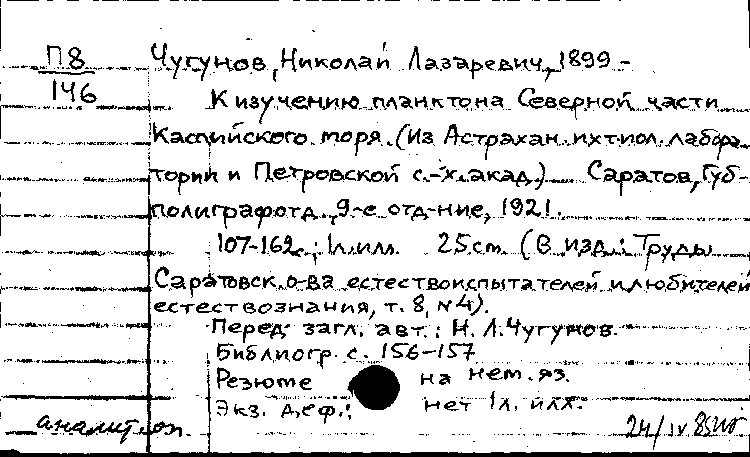 П8
146
Чугунов, Николай Лазаревич, 1899 -
К изучению планктона Северной части
Каспийского моря. (Из Астрахан. ихтиол. лабора-
тории и Петровской с.-х. акад.) Саратов, Губ-
полиграфотд., 9-е отд-ние, 1921.
107-162 с.; 1 л. илл. 25 см. (В изд.: Труды
Саратовск. о-ва естествоиспытателей и любителей
естествознания, т. 8, №4).
Перед загл. авт.: Н. Л. Чугунов.
Библиогр. с. 156-157
Резюме на нем. яз.
Экз. деф.: нет 1 л. илл.
аналит. оп. 24/IV 85